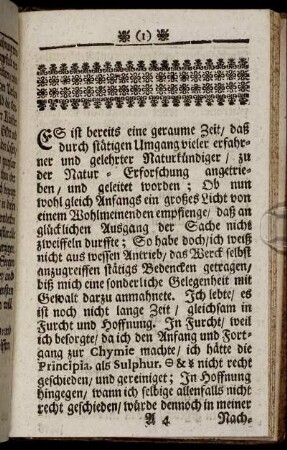 (1)
ES ist bereits eine geraume Zeit/ daß
durch stätigen Umgang vieler erfahr-
ner und gelehrter Naturkündiger/ zu
der Natur-Erforschung angetrie-
ben/ und geleitet worden; Ob nun
wohl gleich Anfangs ein großes Licht von
einem Wohlmeinenden empfienge/ daß an
glücklichen Ausgang der Sache nicht
zweiffeln durffte; So habe doch/ ich weiß
nicht aus wessen Antrieb/ das Werck selbst
anzugreiffen stätigs Bedencken getragen/
biß mich eine sonderliche Gelegenheit mit
Gewalt darzu anmahnete. Ich lebte/ es
ist noch nicht lange Zeit/ gleichsam in
Furcht und Hoffnung. In Furcht/ weil
ich besorgte/ da ich den Anfang und Fort-
gang zur Chymie machte/ ich hätte die
Principia, als Sulphur, 🜔 & ☿ nicht recht
geschieden/ und gereiniget; In Hoffnung
hingegen/ wann ich selbige allenfalls nicht
recht geschieden/ würde dennoch in meiner
A 4 Nach-